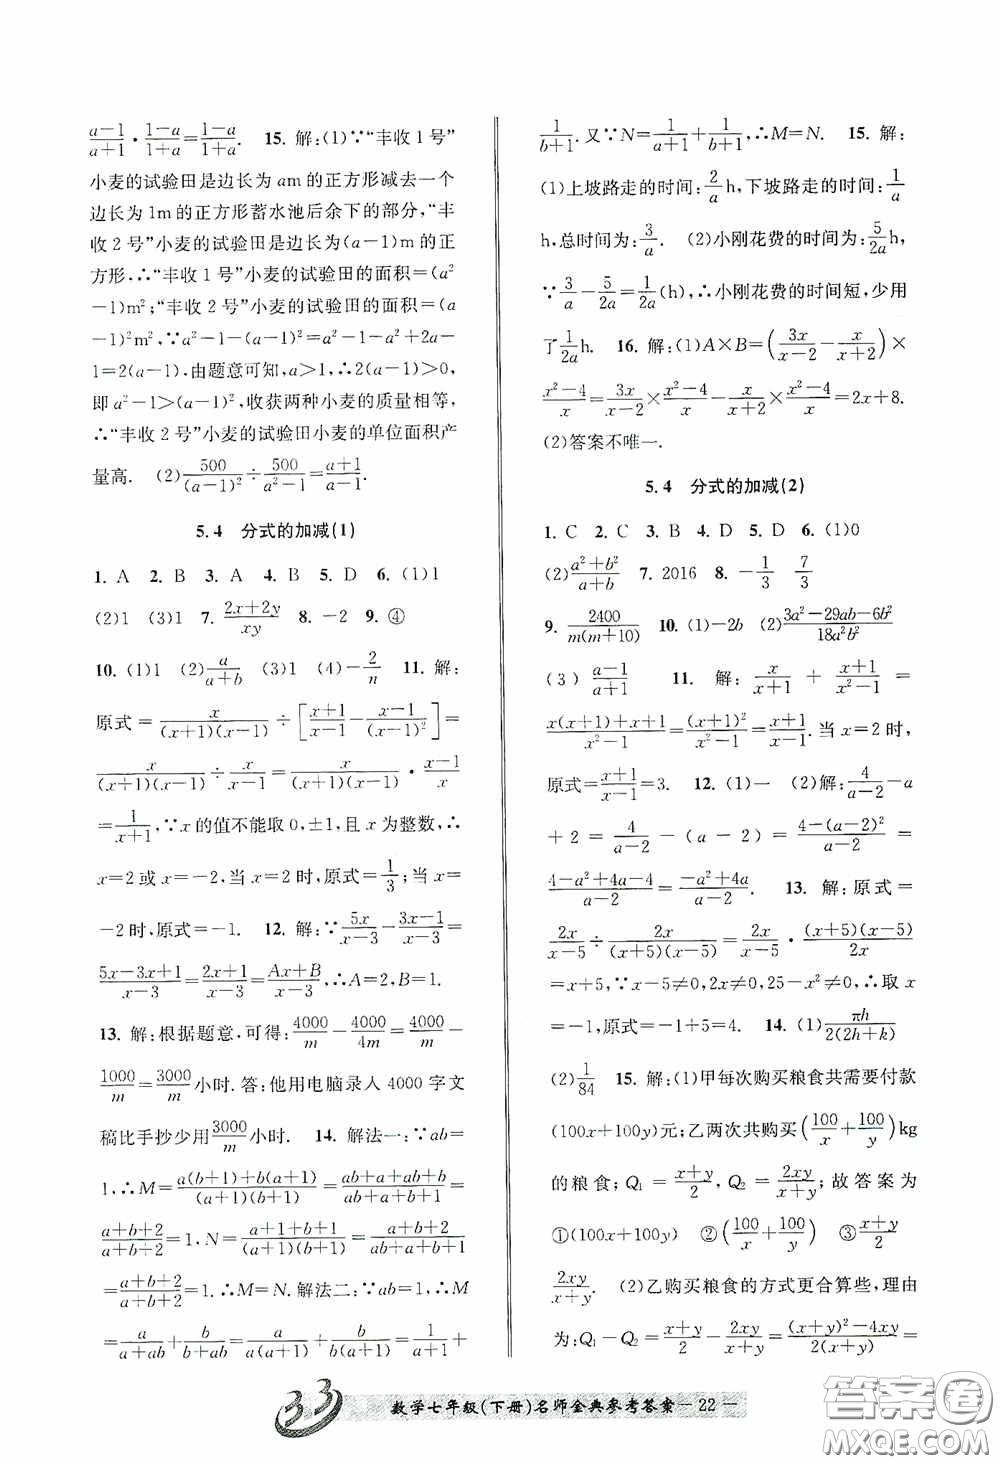 a−1/a+1 · 1−a/1+a = 1−a/1+a. 15. 解:(1)∵“丰收1号”
小麦的试验田是边长为am的正方形减去一个
边长为1m的正方形蓄水池后余下的部分,“丰
收2号”小麦的试验田是边长为(a−1)m的正
方形,∴“丰收1号”小麦的试验田的面积=(a²
−1)m²;“丰收2号”小麦的试验田的面积=(a
−1)²m²,∵a²−1−(a−1)²=a²−1−a²+2a−
1=2(a−1),由题意可知,a>1,∴2(a−1)>0,
即a²−1>(a−1)²,收获两种小麦的质量相等,
∴“丰收2号”小麦的试验田小麦的单位面积产
量高. (2)500/(a−1)² ÷ 500/a²−1 = a+1/a−1.
5.4 分式的加减(1)
1. A 2. B 3. A 4. B 5. D 6. (1)1
(2)1 (3)1 7. 2x+2y/xy 8. −2 9. ④
10. (1)1 (2)a/a+b (3)1 (4)−2/n 11. 解:
原式=x/(x+1)(x−1) ÷ [x+1/x−1 − x−1/(x−1)²] =
x/(x+1)(x−1) ÷ x/x−1 = x/(x+1)(x−1) · x−1/x
=1/x+1,∵x的值不能取0,±1,且x为整数,∴
x=2或x=−2,当x=2时,原式=1/3;当x=
−2时,原式=−1. 12. 解:∵5x/x−3 − 3x−1/x−3 =
5x−3x+1/x−3 = 2x+1/x−3 = Ax+B/x−3,∴A=2,B=1.
13. 解:根据题意,可得:4000/m − 4000/4m = 4000/m −
1000/m = 3000/m小时.答:他用电脑录入4000字文
稿比手抄少用3000/m小时. 14. 解法一:∵ab=
1,∴M=a(b+1)+b(a+1)/(a+1)(b+1) = ab+a+ab+b/ab+a+b+1 =
a+b+2/a+b+2 =1,N= a+1+b+1/(a+1)(b+1) = a+b+2/a+b+ab+1 =
a+b+2/a+b+2 =1.∴M=N.解法二:∵ab=1,∴M
= a/a+ab + b/b+ab = a/a(b+1) + b/b(a+1) = 1/b+1 +
1/b+1.又∵N=1/a+1 + 1/b+1,∴M=N. 15. 解:
(1)上坡路走的时间:2/a h,下坡路走的时间:1/a
h,总时间为:3/a. (2)小刚花费的时间为:5/2a h,
∵3/a − 5/2a = 1/2a(h),∴小刚花费的时间短,少用
了1/2a h. 16. 解:(1)A×B=(3x/x−2 − x/x+2)×
x²−4/x = 3x/x−2 × x²−4/x − x/x+2 × x²−4/x =2x+8.
(2)答案不唯一.
5.4 分式的加减(2)
1. C 2. C 3. B 4. D 5. D 6. (1)0
(2)a²+b²/a+b 7. 2016 8. −1/3 7/3
9. 2400/m(m+10) 10. (1)−2b (2)3a²−29ab−6b²/18a²b²
(3) a−1/a+1 11. 解: x/x+1 + x+1/x²−1 =
x(x+1)+x+1/x²−1 = (x+1)²/x²−1 = x+1/x−1.当x=2时,
原式=x+1/x−1 =3. 12. (1)一 (2)解:4/a−2 −a
+2= 4/a−2 −(a−2)= 4−(a−2)²/a−2 =
4−a²+4a−4/a−2 = −a²+4a/a−2. 13. 解:原式=
2x/x−5 ÷ 2x/(x+5)(x−5) = 2x/x−5 · (x+5)(x−5)/2x
=x+5,∵x−5≠0,2x≠0,25−x²≠0,∴取x
=−1,原式=−1+5=4. 14. (1)πh/2(2h+k)
(2)1/84 15. 解:(1)甲每次购买粮食共需要付款
(100x+100y)元;乙两次共购买(100/x + 100/y)kg
的粮食;Q₁=x+y/2,Q₂=2xy/x+y;故答案为
①(100x+100y) ②(100/x + 100/y) ③x+y/2
2xy/x+y. (2)乙购买粮食的方式更合算些,理由
为:Q₁−Q₂= x+y/2 − 2xy/x+y = (x+y)²−4xy/2(x+y) =
33 数学七年级(下册)名师金典参考答案—22—
答案圈
MXQE.COM